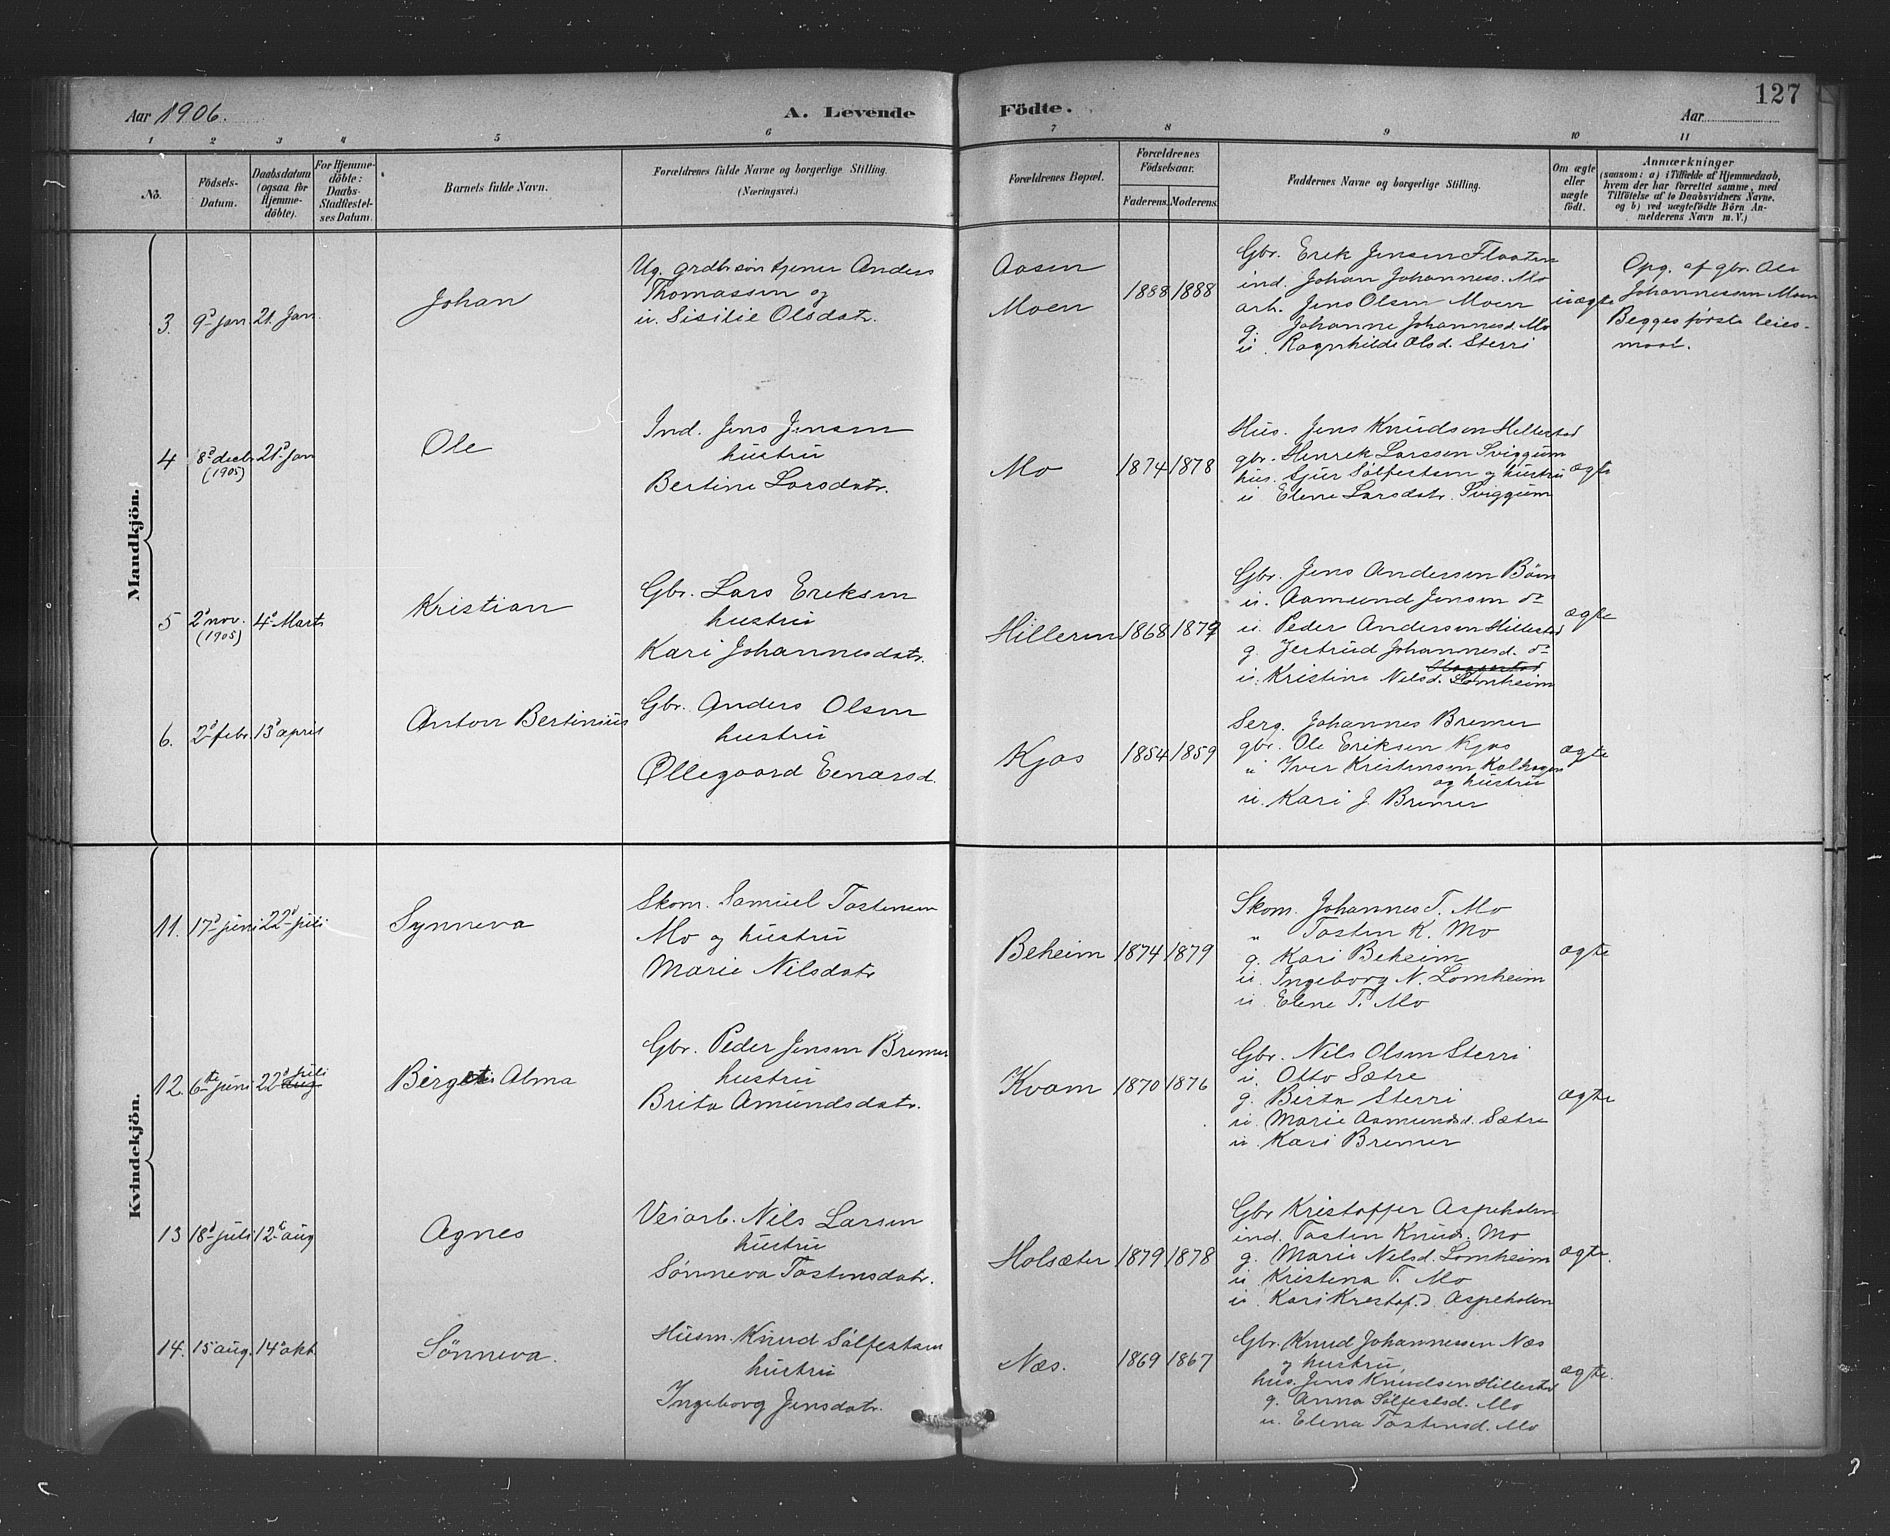 127
Aar 1906.
A. Levende
Födte.
Aar
1 2 3 4 5 6 7 8 9 10 11
No.
Födsels-
Datum.
Daabsdatum
(ogsaa for
Hjemme-
döbte).
For Hjemme-
döbte:
Daabs-
Stadfæstel-
ses Datum.
Barnets fulde Navn.
Forældrenes fulde Navne og borgerlige Stilling.
(Næringsvei.)
Forældrenes Bopæl.
Forældrenes
Födselsaar.
Faderens. Moderens.
Faddernes Navne og borgerlige Stilling.
Om ægte
eller
uægte
födt.
Anmærkninger
(saasom: a) i Tilfælde af Hjemmedaab,
hvem der har forrettet samme, med
Tilföielse af to Daabsvidners Navne,
og b) ved uægtefödte Börn An-
melderens Navn m. V.)
Mandkjön.
3. 9d jan 21. jan. Johan
Ug. grdbr.søn tjener Anders
Thomassen og
u. Sisilie Olsdatr.
Aasen
Moen
1888 1888
Gbr. Erik Jensen Flaaten
ind. Johan Johanness. Mo
arb. Jens Olsen Moen
g. Johanne Johannesd. Mo
u. Ragnhilde Olsd. Sterri
uægte
Opg. af gbr. Ole
Johannessen Moen
Begges første leies-
maal.
4 8d decbr (1905) 21d jan Ole
Ind. Jens Jensen
hustru
Bertine Larsdatr.
Mo
1874 1878
Hus. Jens Knudsen Hillestad
gbr. Henrek Larssen Sviggum
hus. Sjur Sølfestsen og hustru
u. Elene Larsdatr. Sviggum
ægte
5 2d nov. (1905) 4d Marts Kristian
Gbr. Lars Eriksen
hustru
Kari Johannesdatr.
Hilleren
1868 1879
Gbr. Jens Andersen Bøen
u. Aamund Jensen do
u. Peder Andersen Hillestad
g. Jertrud Johannesd. do
u. Kristine Nilsd. Lomheim
ægte
6. 2d febr. 13d april Anton Bertinius
Gbr. Anders Olsen
hustru
Øllegaard Eenarsd.
Kjos
1854 1859
Serg. Johannes Bremer
gbr. Ole Eriksen Kjos
" Iver Kristensen Kalhagen
og hustru
u. Kari J. Bremer
ægte
Kvindekjön.
11. 17d juni 22d juli Synneva
Skom. Samuel Tostensen
Mo og hustru
Marie Nilsdatr
Beheim
1874 1879
Skom. Johannes T. Mo
" Tosten K. Mo
g. Kari Beheim
u. Ingeborg N. Lomheim
u. Elene T. Mo
ægte
12. 6te juni 22d juli aug Birgete Alma
Gbr. Peder Jensen Bremer
hustru
Brita Amundsdatr.
Kvam
1870 1876
Gbr. Nils Olsen Sterri
u. Otto Sætre
g. Birta Sterri
u. Marie Aamundsd. Sætre
u. Kari Bremer
ægte
13 18d juli 12te aug Agnes
Veiarb. Nils Larsen
hustru
Sønneva Tostensdatr.
Holsæter
1879 1878
Gbr Kristoffer Aspeholen
ind. Tosten Knud. Mo
g. Marie Nilsd. Lomheim
u Kristina T. Mo
u. Kari Krestof.d. Aspeholen
ægte.
14. 15 aug. 14d okt. Sønneva.
Husm. Knud Sølfestsen
hustru
Ingeborg Jensdatr.
Næs.
1869 1867
Gbr. Knud Johannessen Næs
og hustru,
hus. Jens Knudsen Hillestad
g. Anna Sølfestsd. Mo
u. Elena Tostensd. Mo
ægte.